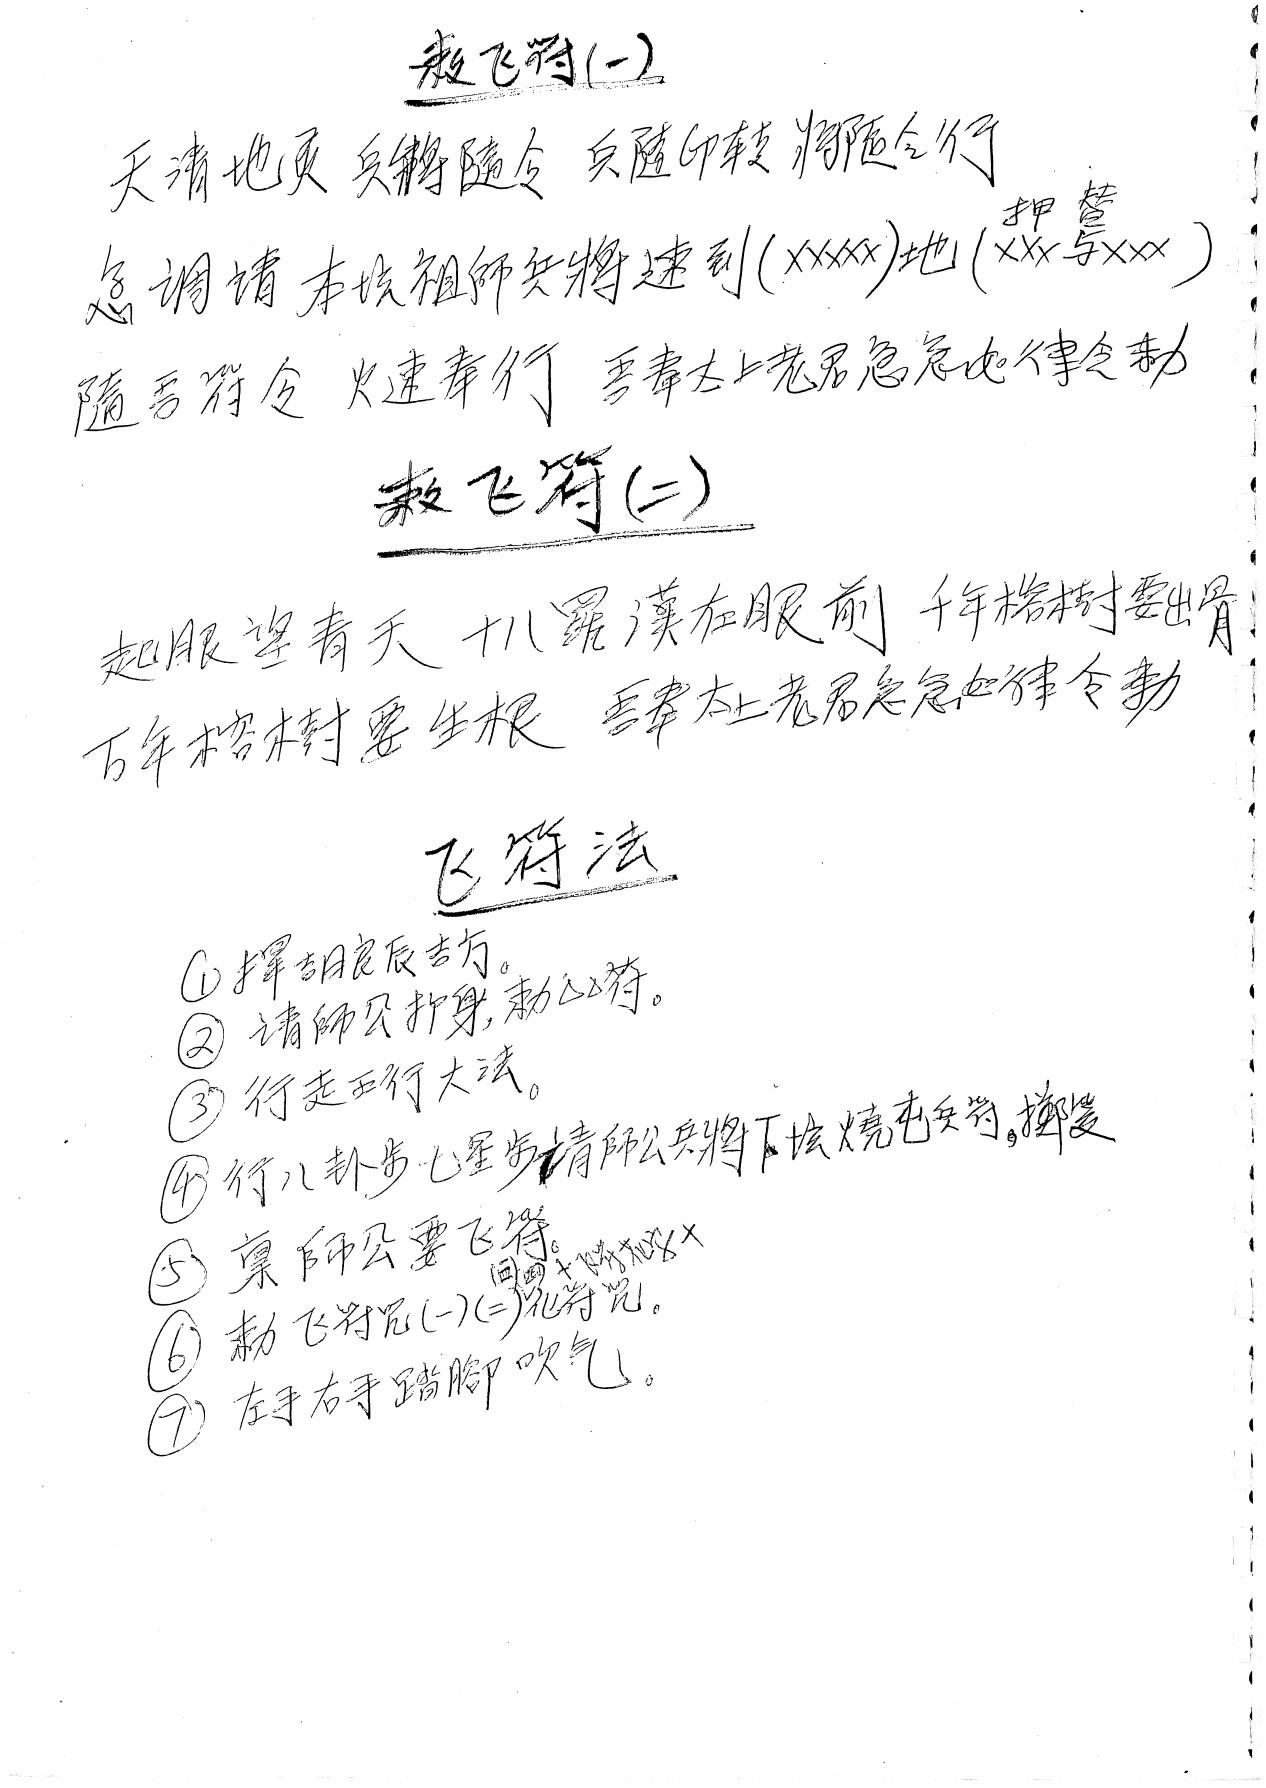 敕飞符(一)
天清地灵 兵將隨令 兵隨印转 將隨令行
押 替
急调请本坛祖師兵將速到(xxxxx)地(xxx与xxx)
隨吾符令 火速奉行 吾奉太上老君急急如律令勅
敕飞符(二)
起眼望青天 十八羅漢在眼前 千年榕樹要出骨
万年榕樹要生根 吾奉太上老君急急如律令勅
飞符法
① 擇胡良辰吉方。
② 请師公护身,勅符。
③ 行走五行大法。
④ 行八卦步七星步请師公兵將下坛燒屯兵符。擲筊
⑤ 稟師公要飞符。
⑥ 勅飞符咒(一)(二)化符咒。
⑦ 左手右手踏腳吹气。